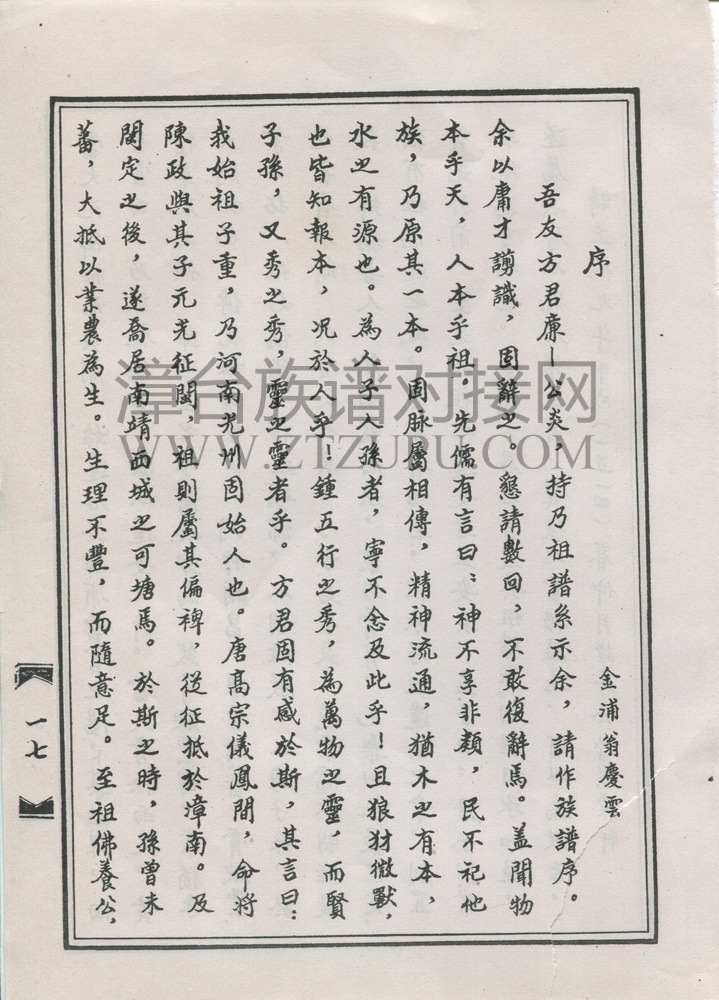 序
金浦翁慶雲
吾友方君廉—公炎，持乃祖譜系示余，請作族譜序。
余以庸才謭識，固辭之。懇請數回，不敢復辭焉。蓋聞物
本乎天，人本乎祖。先儒有言曰：神不享非類，民不祀他
族，乃原其一本。固脉屬相傳，精神流通，猶木之有本，
水之有源也。為人子人孫者，寧不念及此乎！且狼犲微獸，
也皆知報本，况於人乎！鍾五行之秀，為萬物之靈，而賢
子孫，又秀之秀，靈之靈者乎。方君固有感於斯，其言曰：
我始祖子重，乃河南光州固始人也。唐高宗儀鳳間，命將
陳政與其子元光征閩，祖則屬其偏裨，從征抵於漳南。及
閩定之後，遂喬居南靖西城之可塘焉。於斯之時，孫曾未
蕃，大抵以業農為生。生理不豐，而隨意足。至祖佛養公，
一七
漳台族谱对接网
WWW.ZTZUPU.COM